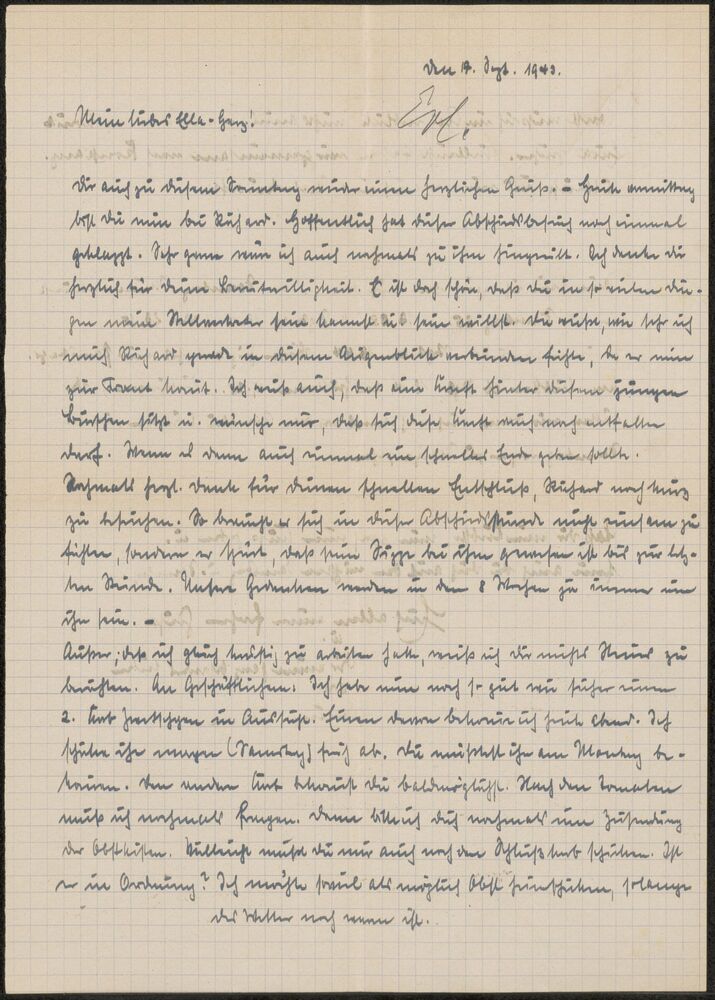 Den 17. Sept. 1943.
Erl.
Mein liebes Ella-Herz!
Dir auch zu diesem Sonntag wieder einen herzlichen Gruß. - Heute vormittag
bist Du nun bei Richard. Hoffentlich hat dieser Abschiedsbesuch noch einmal
geklappt. Sehr gerne wäre ich auch nochmals zu ihm hingeeilt. Ich danke Dir
herzlich für Deine Bereitwilligkeit. Es ist doch schön, daß Du in so vielen Din-
gen mein Stellvertreter sein kannst u. sein willst. Du weißt, wie sehr ich
mich Richard gerade in diesem Augenblick verbunden fühle, da er nun
zur Front kommt. Ich weiß auch, daß eine Kraft hinter diesem jungen
Burschen sitzt u. wünsche nur, daß sich diese Kraft auch noch entfalten
darf. Wenn es dann auch einmal ein schnelles Ende geben sollte.
Nochmals herzl. Dank für Deinen schnellen Entschluß, Richard noch kurz
zu besuchen. So braucht er sich in dieser Abschiedsstunde nicht einsam zu
fühlen, sondern er spürt, daß seine Sippe bei ihm gewesen ist bis zur letz-
ten Stunde. Unsere Gedanken werden in den 8 Wochen ja immer um
ihn sein. -
Außer, daß ich gleich kräftig zu arbeiten hatte, weiß ich Dir nichts Neues zu
berichten. An Geschäftlichem: Ich habe nun noch so gut wie sicher einen
2. Korb Zwetschgen in Aussicht. Einen davon bekomme ich heute abend. Ich
schicke ihn morgen (Samstag) früh ab. Du müßtest ihn am Montag be-
kommen. Den anderen Korb bekommst Du baldmöglichst. Nach den Tomaten
muß ich nochmals fragen. Dann bitte ich Dich nochmals um Zusendung
der Obstkisten. Vielleicht mußt Du mir auch noch den Schlußkorb schicken. Ist
er in Ordnung? Ich möchte soviel als möglich Obst heimschicken, solange
das Wetter noch warm ist.